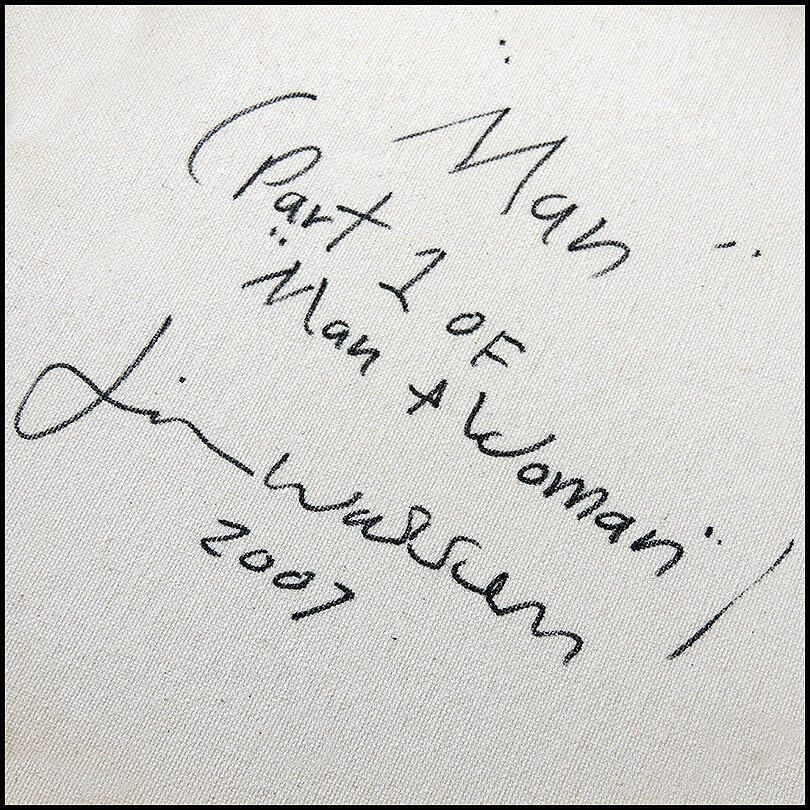 "Man"
(Part 1 OF
"Man + Woman")
Jim Warren
2007